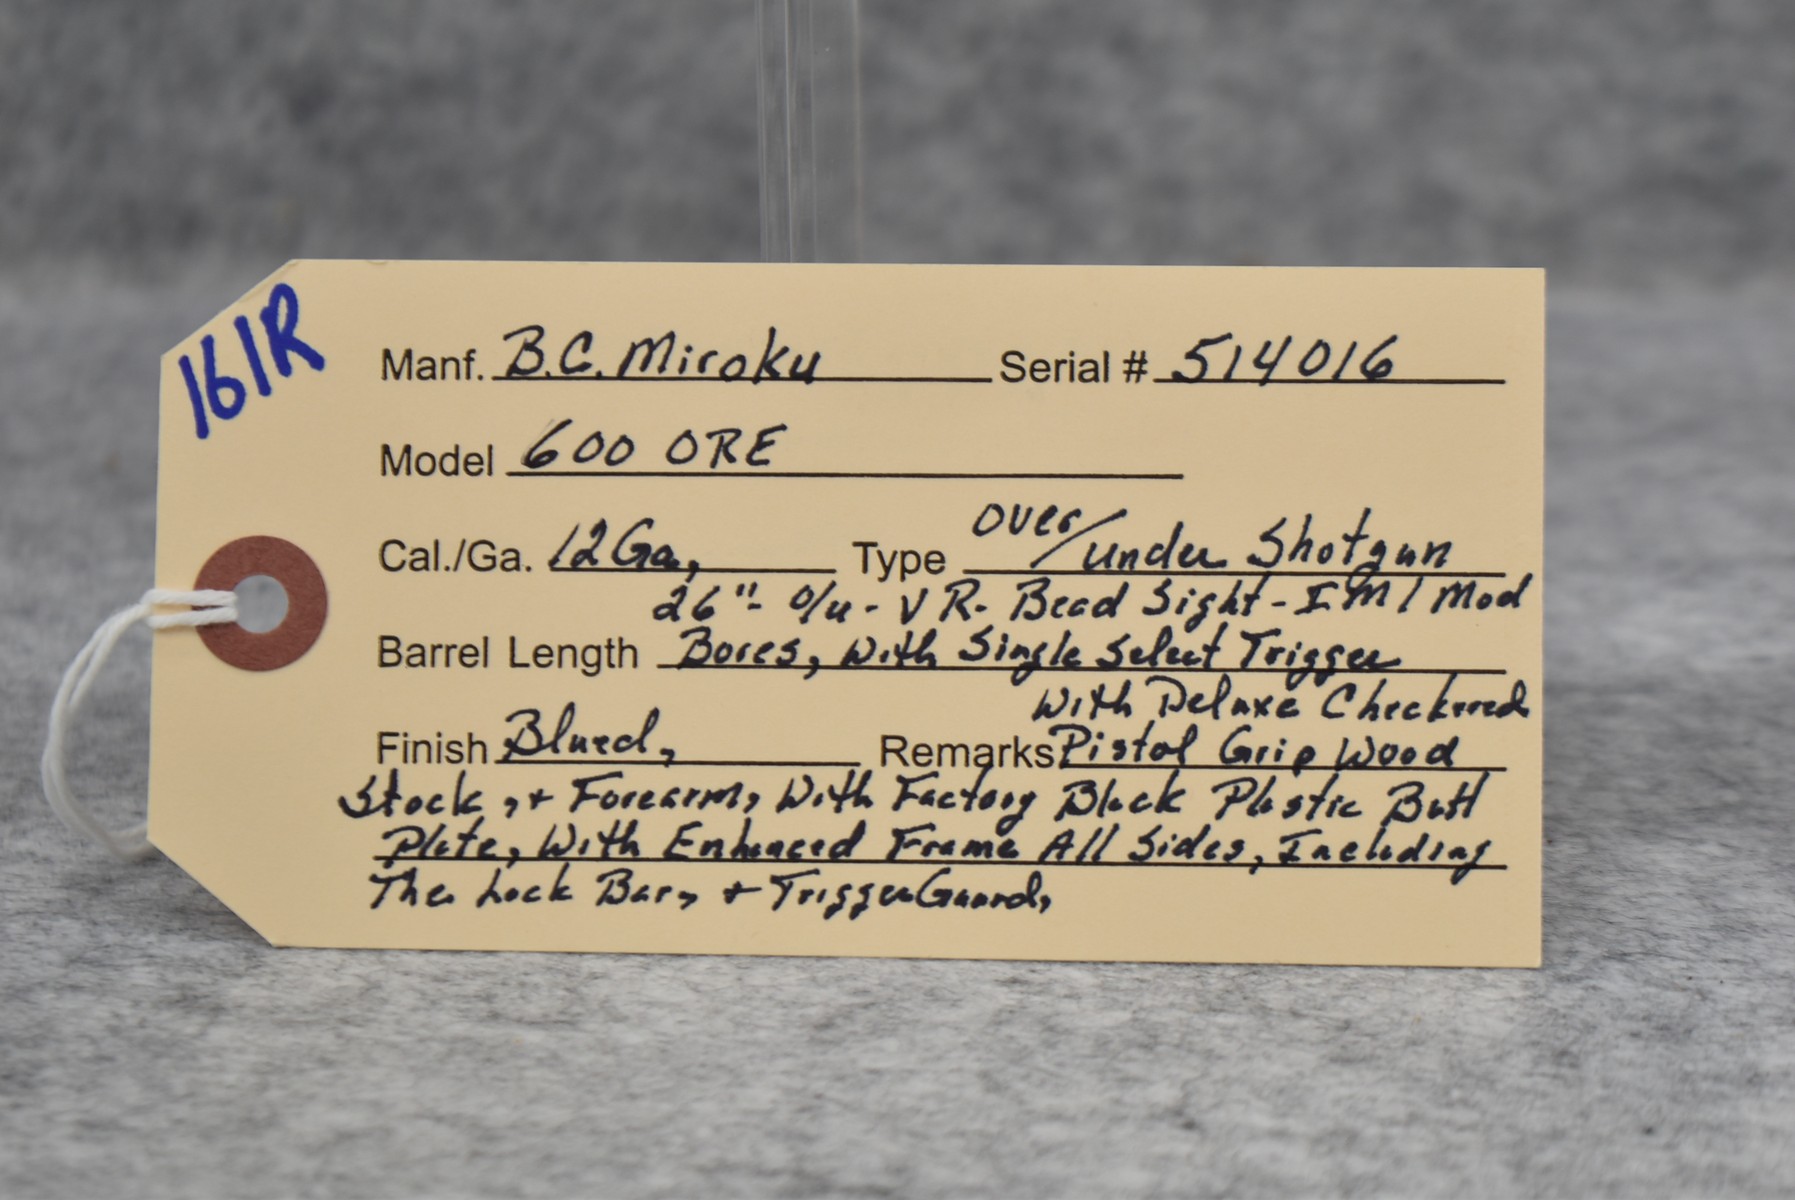 161R
Manf. B.C. Miroku Serial # 514016
Model 600 ORE
Cal./Ga. 12 Ga, Type Over/under Shotgun
26"- O/u - V R- Bead Sight - IM / Mod
Barrel Length Bores, With Single Select Trigger
With Deluxe Checkered
Finish Blued, Remarks Pistol Grip Wood
Stock, + Forearm, With Factory Black Plastic Butt
Plate, With Enhanced Frame All Sides, Including
The Lock Bar, + Trigger Guard,